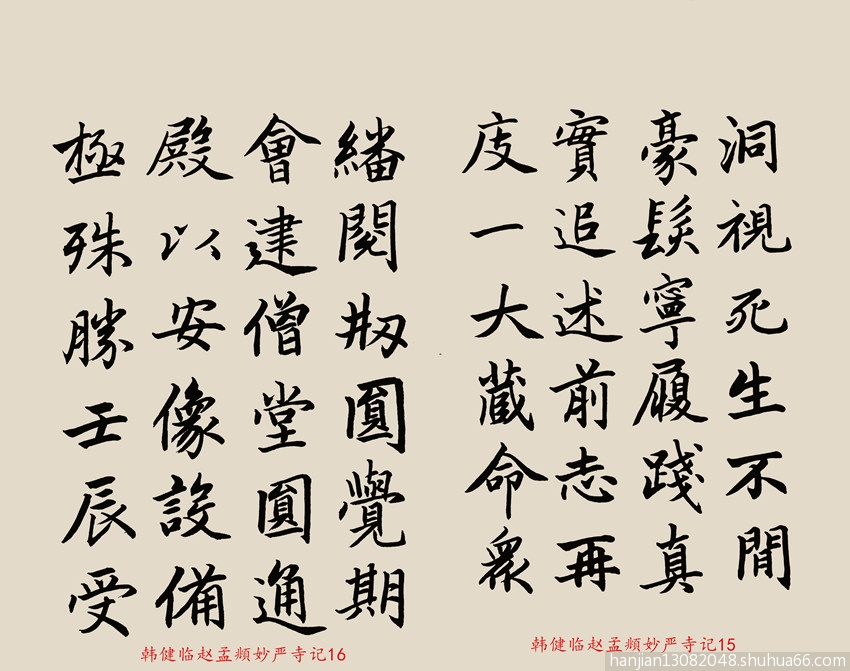 洞視死生不閒
豪髮寧履踐真
實追述前志再
庋一大蔵命衆
韩健临赵孟頫妙严寺记15
繙閱刱圓覺期
會建僧堂圓通
殿以安像設備
極殊勝壬辰受
韩健临赵孟頫妙严寺记16
hanjian13082048.shuhua66.com